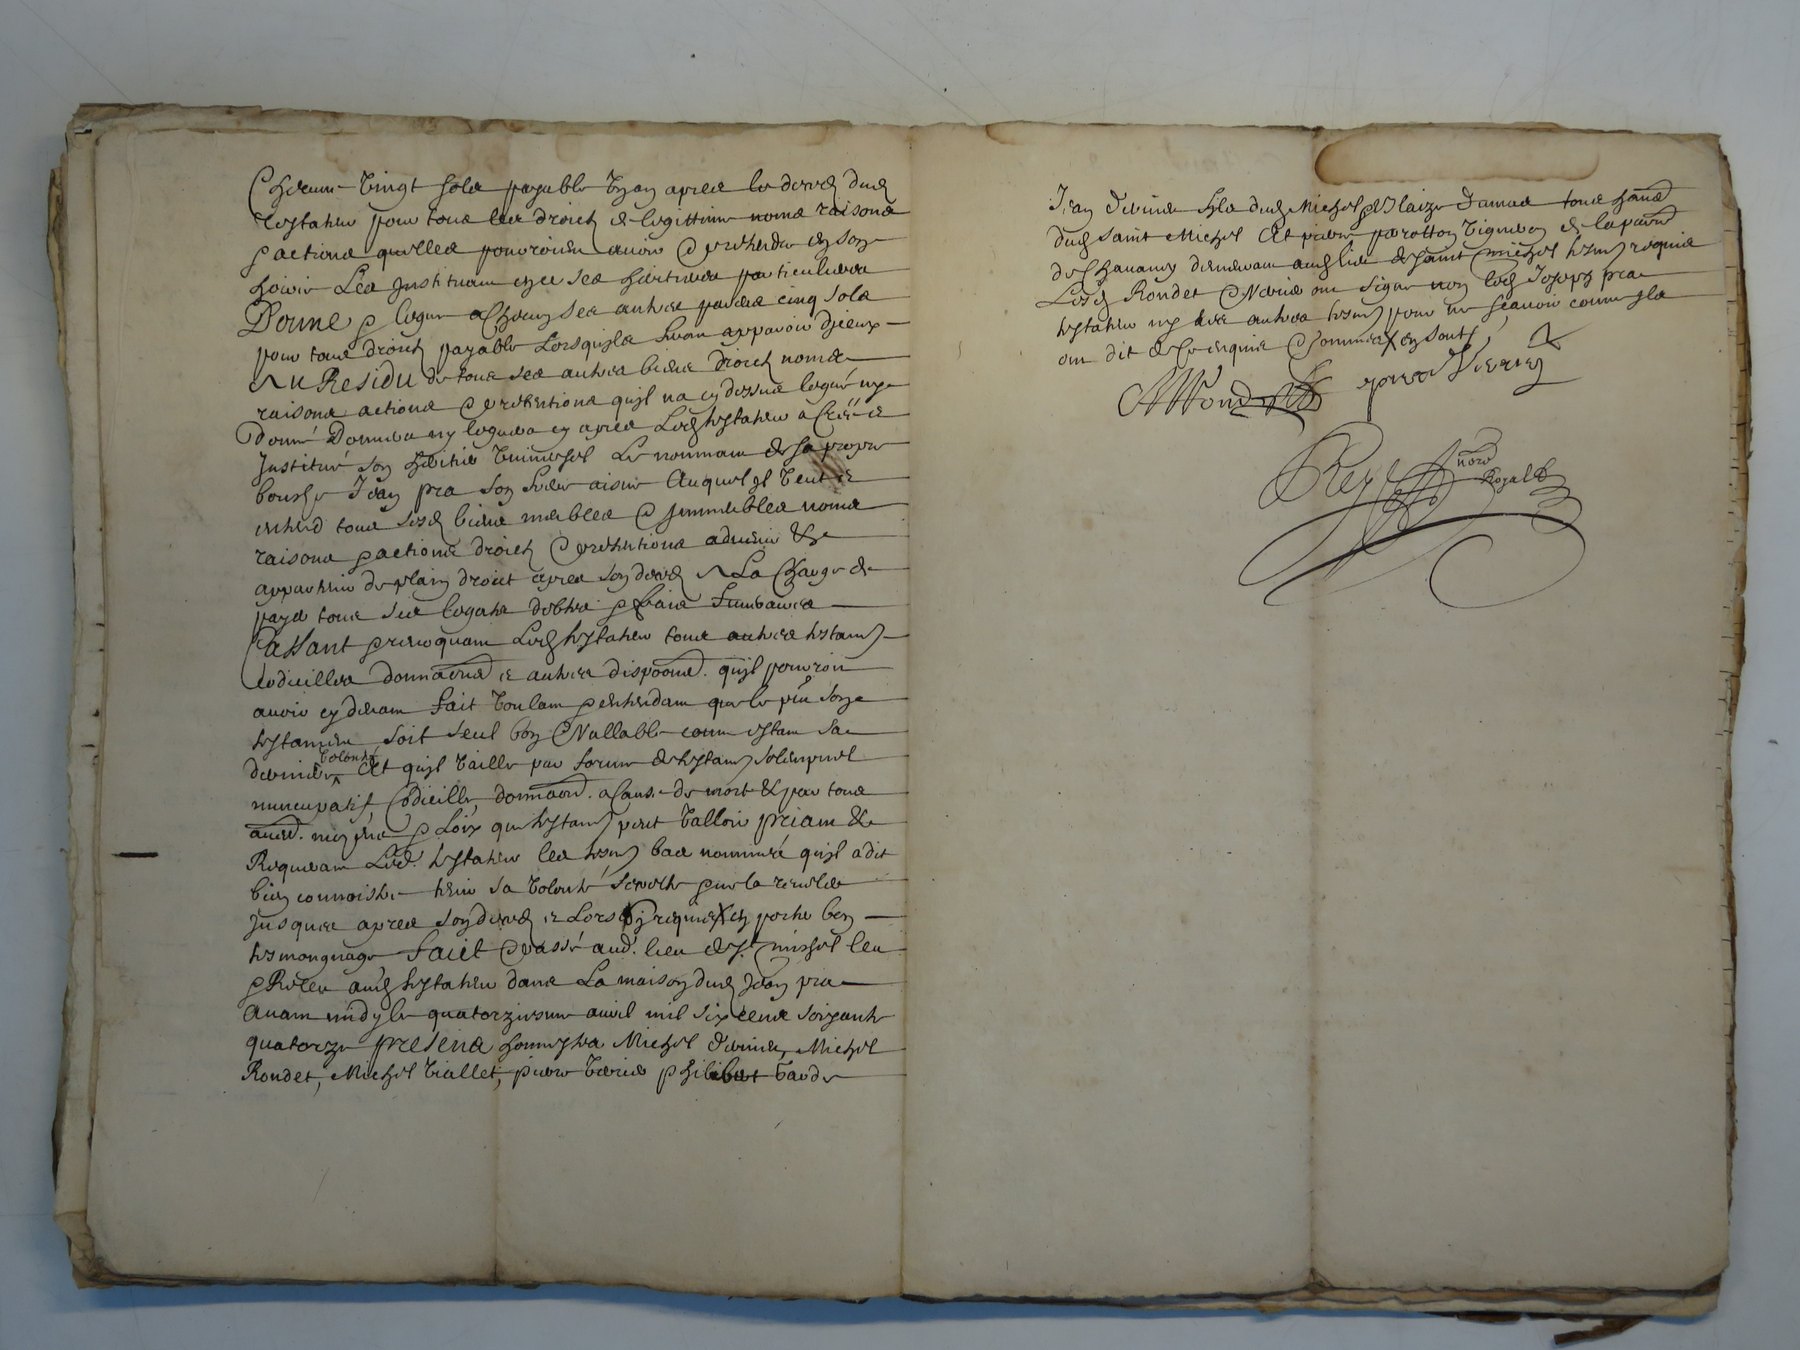 Chacune vingt sols payable ung an apres le deces dud
testateur pour tous les droictz de legittime noms raisons
& actions quelles pourroient avoir & pretendre en son
hoirie Les Instituant en ce ses heritieres particulieres
Donne & legue a chacung ses autres parans cinq sols
pour tous droictz payable Lorsquils feront apparoir djceux
Au Residu de tous ses autres biens droictz noms
raisons actions & pretentions quil na cy dessus legué ny
donné Donnera ny leguera cy apres Led testateur a Creé et
Institué son heritier universel Le nommant de sa propre
bouche Jean pra son frere aisné Auquel jl veut et
entend tous sesd biens meubles & jmmeubles noms
raisons & actions droictz & pretentions advenir &
appartenir de plain droict apres son deces A La Charge de
payer tous ses legats debtes & frais funeraires
Cassant & revoquant Led testateur tous autres testamt
codicilles donnaons et autres dispoons quil pourroit
avoir cy devant fait Voulant & entendant que le pnt son
testament soit seul bon & Vallable comme estant sa
derniere volonté Et quil vaille par forme de testamt solempnel
nuncupatif Codicille, donnaon a cause de mort & par tous
autres moyens & Loix que testamt peut valloir priant &
Requerant Led testateur les tesm bas nommés quil a dit
bien connoistre tenir sa volonté secrette & ne la reveler
jusques apres son deces et Lors requis en porter bon
tesmongnage Faict & passé aud lieu de st michel leu
& Releu aud testateur dans La maison dud Jean pra
Avant midy le quatorziesme avril mil six cens soixante
quatorze presens honnestes Michel Michel
Rondet, Michel Viallet, pierre philibert
Jean fils dud Michel & Blaize Damas tous habitans
dud saint Michel Et pierre vigneron de la parroisse
de Chavannes demeurant aud lieu de saint michel tesm requis
Lesd Rondet & ont signé non led Joseph pra
testateur ny les autres tesm pour ne scavoir comme jls
ont dit de ce enquis & sommés
MRondet
Rey
notre
Royal